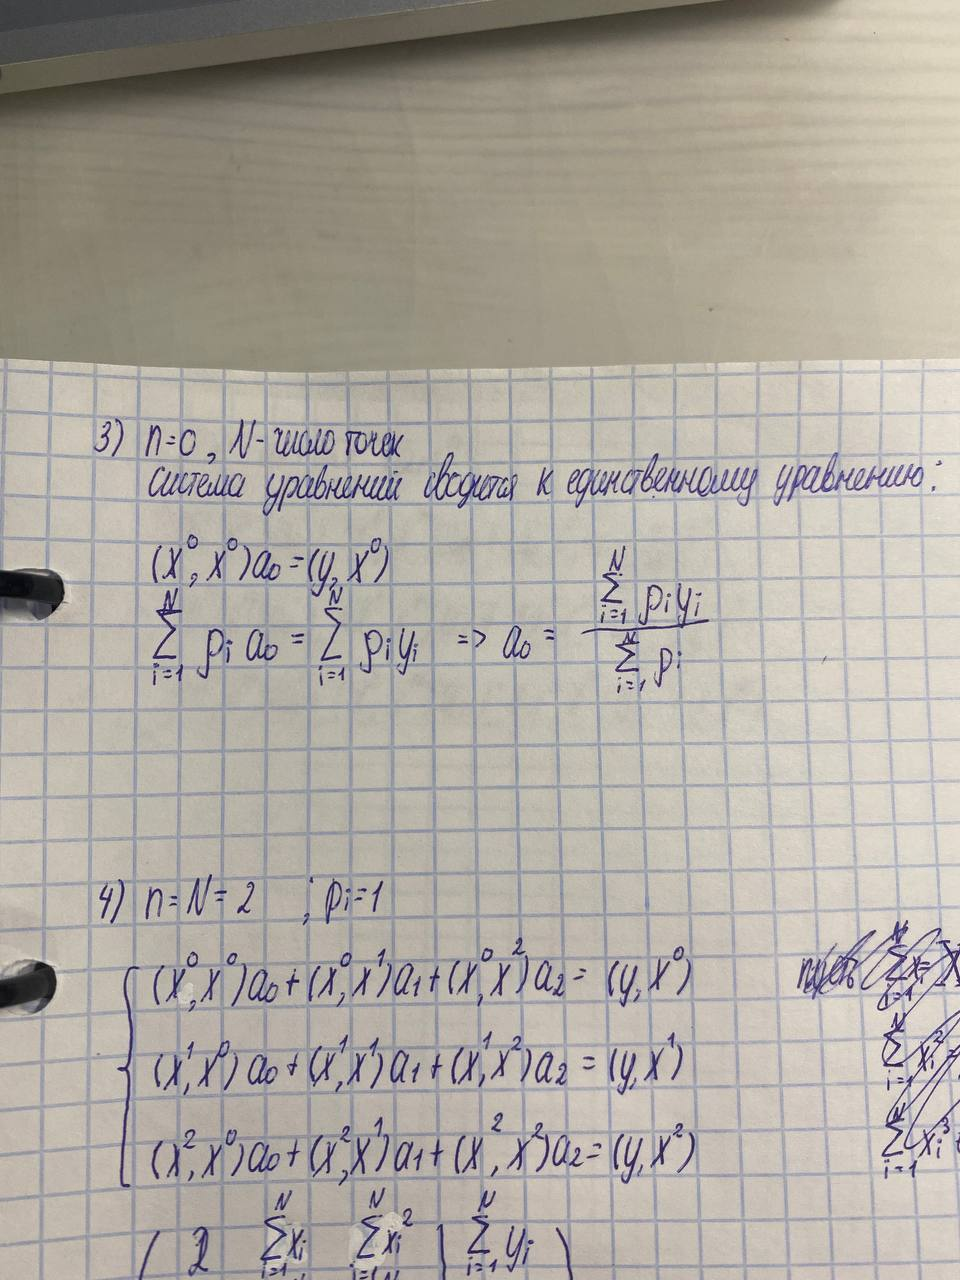 3) n=0, N- число точек
система уравнений сводится к единственному уравнению:
(x⁰, x⁰)a₀ = (y, x⁰)
∑ᵢ₌₁ᴺ ρᵢ a₀ = ∑ᵢ₌₁ᴺ ρᵢyᵢ => a₀ = (∑ᵢ₌₁ᴺ ρᵢyᵢ) / (∑ᵢ₌₁ᴺ ρᵢ)
4) n=N=2 ; ρᵢ=1
(x⁰, x⁰)a₀ + (x⁰, x¹)a₁ + (x⁰, x²)a₂ = (y, x⁰)
(x¹, x⁰)a₀ + (x¹, x¹)a₁ + (x¹, x²)a₂ = (y, x¹)
∑ᵢ₌₁ᴺ xᵢ²
(x², x⁰)a₀ + (x², x¹)a₁ + (x², x²)a₂ = (y, x²)
∑ᵢ₌₁ᴺ xᵢ³
( 2 ∑ᵢ₌₁ᴺ xᵢ ∑ᵢ₌₁ᴺ xᵢ² | ∑ᵢ₌₁ᴺ yᵢ )